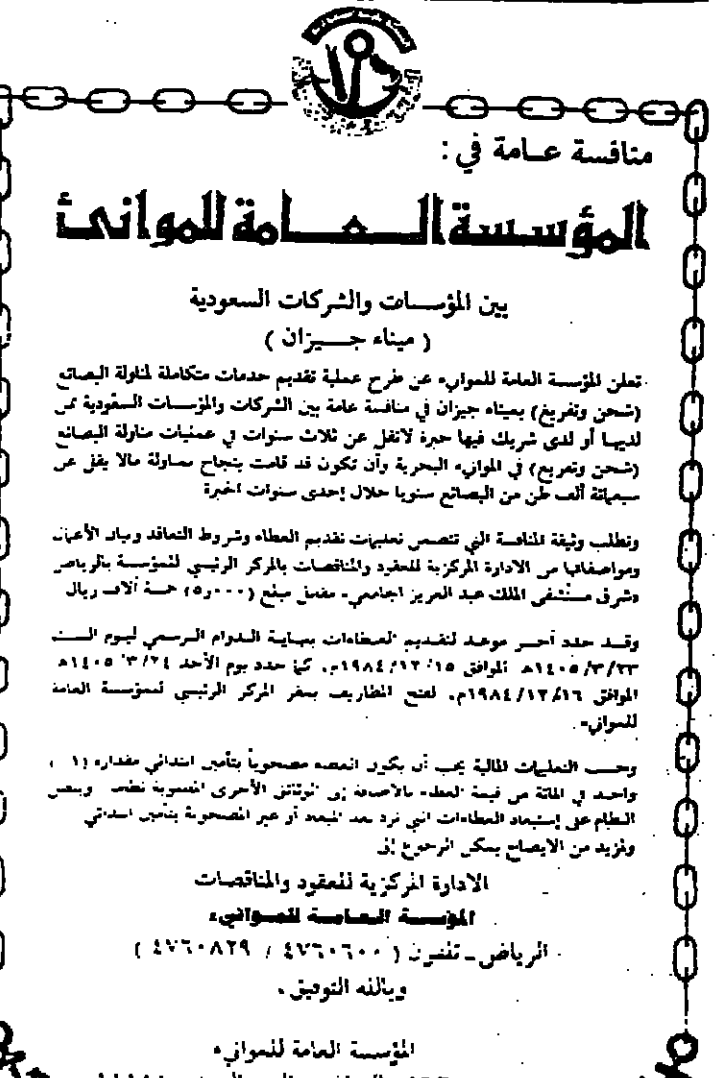 منافسة عامة في :
المؤسسة العامة للموانئ
بين المؤسسات والشركات السعودية
( ميناء جيزان )
تعلن المؤسسة العامة للموانىء عن طرح عملية تقديم خدمات متكاملة لمناولة البضائع
(شحن وتفريغ) بميناء جيزان في منافسة عامة بين الشركات والمؤسسات السعودية ممن
لديها أو لدى شريك فيها خبرة لاتقل عن ثلاث سنوات في عمليات مناولة البضائع
(شحن وتفريغ) في الموانىء البحرية وأن تكون قد قامت بنجاح بمناولة مالا يقل عن
سبعمائة ألف طن من البضائع سنويا خلال إحدى سنوات الخبرة
وتطلب وثيقة المنافسة التي تتضمن تعليمات تقديم العطاء وشروط التعاقد وبيان الأعمال
ومواصفاتها من الادارة المركزية للعقود والمناقصات بالمركز الرئيسي للمؤسسة بالرياض
«شرق مستشفى الملك عبد العزيز الجامعي» مقابل مبلغ (٥٫٠٠٠) خمسة آلاف ريال
وقد حدد آخر موعد لتقديم العطاءات بنهاية الدوام الرسمي ليوم السبت
١٤٠٥/٣/٢٣هـ الموافق ١٩٨٤/١٢/١٥م، كما حدد يوم الأحد ١٤٠٥/٣/٢٤هـ
الموافق ١٩٨٤/١٢/١٦م، لفتح المظاريف بمقر المركز الرئيسي للمؤسسة العامة
للموانىء
وحسب التعليمات المالية يجب أن يكون العطاء مصحوباً بتأمين ابتدائي مقداره (١
واحد في المائة من قيمة العطاء بالاضافة إلى الوثائق الأخرى المطلوبة نظاما وينص
النظام على إستبعاد العطاءات التي ترد بعد الميعاد أو غير المصحوبة بتأمين ابتدائي
ولمزيد من الايضاح يمكن الرجوع إلى
الادارة المركزية للعقود والمناقصات
المؤسسة العامة للموانىء
الرياض ـ تلفون ( ٤٧٦٠٦٠٠ / ٤٧٦٠٨٢٩ )
وبالله التوفيق ،
المؤسسة العامة للموانىء